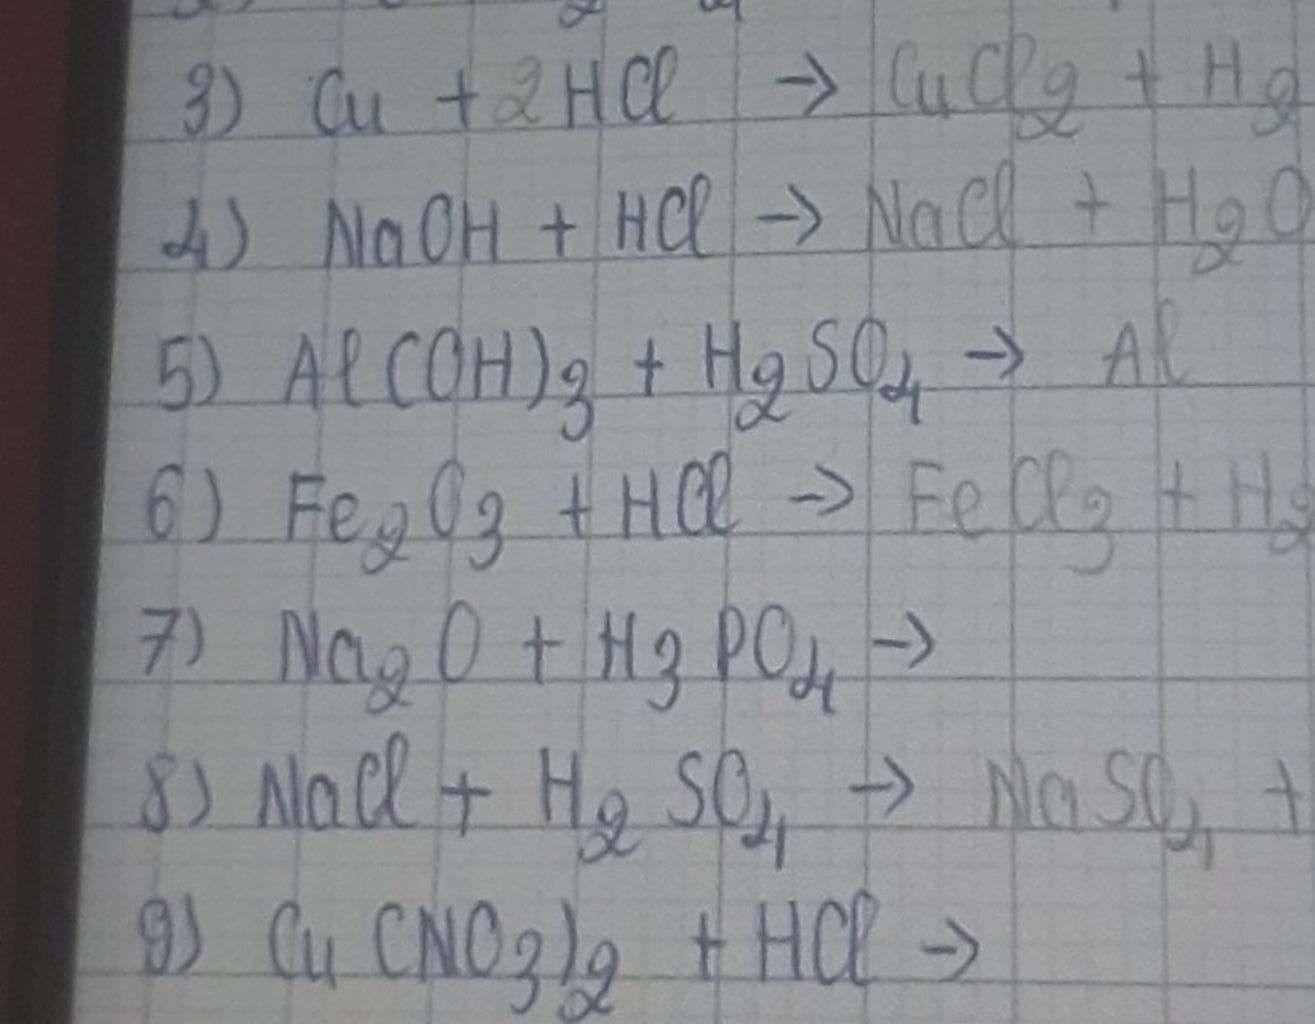 3) Cu + 2HCl → CuCl2 + H2
4) NaOH + HCl → NaCl + H2O
5) Al(OH)3 + H2SO4 → Al
6) Fe2O3 + HCl → FeCl3 + H2
7) Na2O + H3PO4 →
8) NaCl + H2SO4 → NaSO4 +
9) Cu(NO3)2 + HCl →